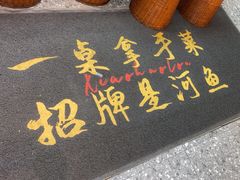 一桌拿手菜
Xiaohuolou
招牌是河鱼